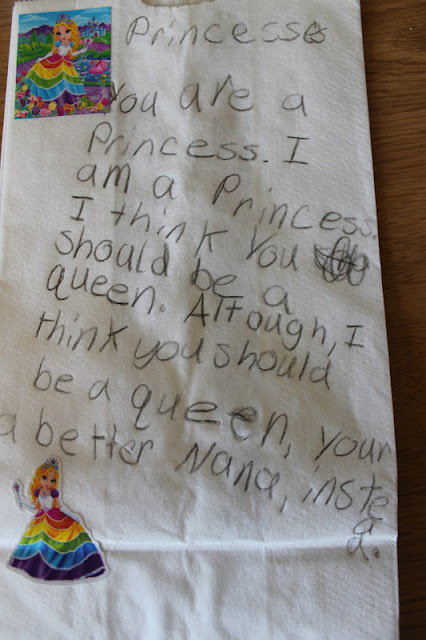 Princess
You are a
Princess. I
am a Princess.
I think you
should be a
queen. Altough, I
think you should
be a queen, your
a better Nana, inste
a.